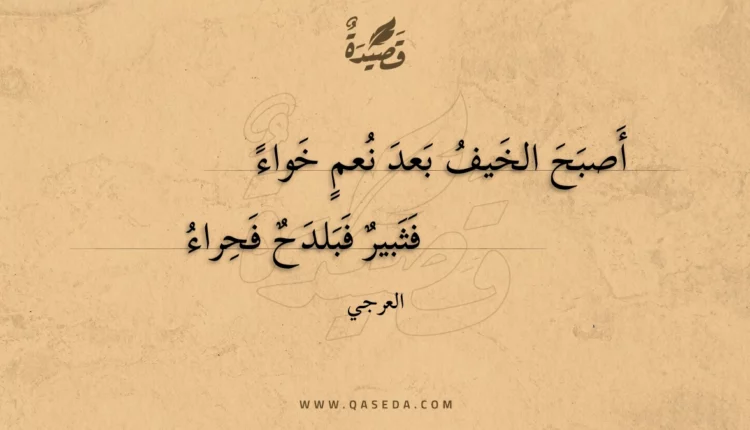 قَصِيدَةٌ
أَصبَحَ الخَيفُ بَعدَ نُعمٍ خَواءً
فَثَبيرٌ فَبَلدَحٌ فَحِراءُ
العرجي
WWW.QASEDA.COM